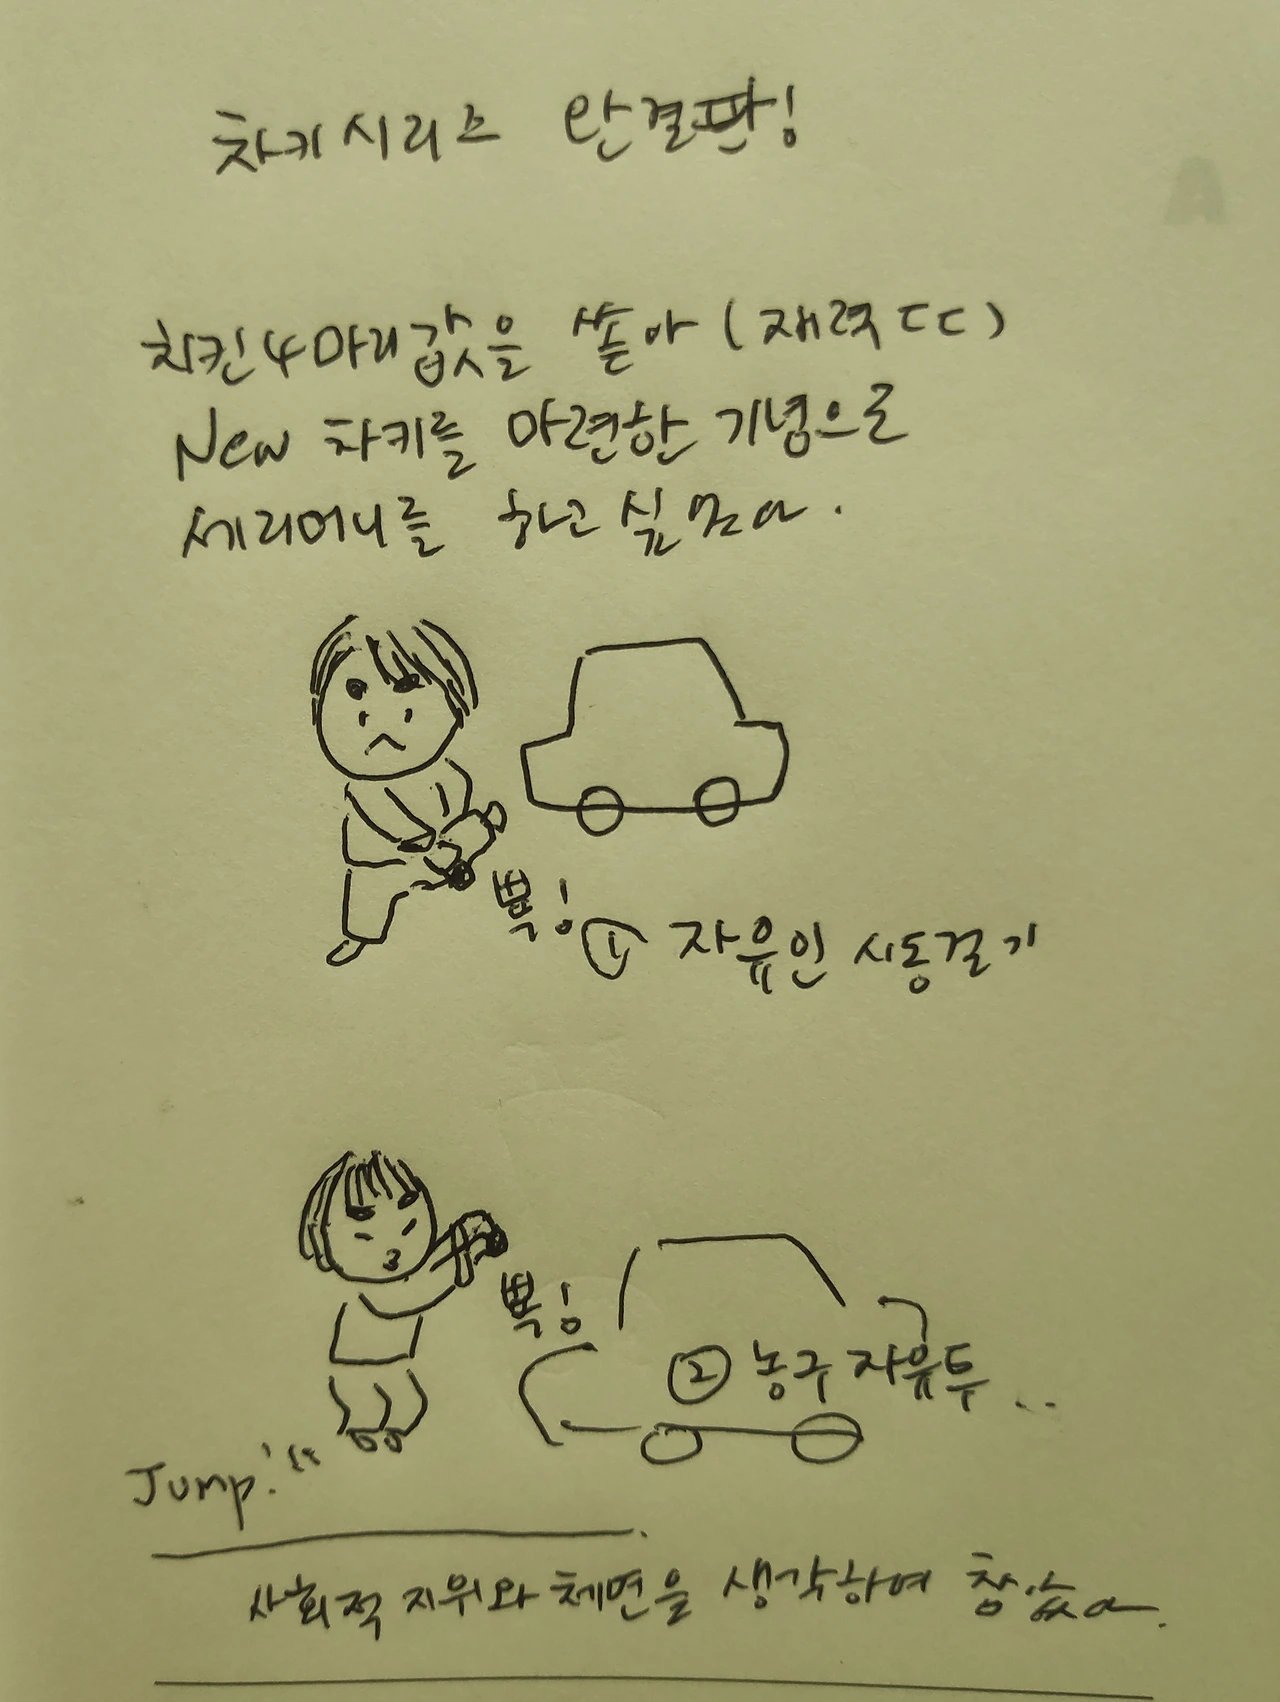 차키시리즈 완결판!
치킨4마리값을 쏟아 (재력ㄷㄷ)
New 차키를 마련한 기념으로
세리머니를 하고싶었다.
뾱!
① 자유인 시동걸기
뾱!
② 농구 자유투...
Jump!!!
사회적 지위와 체면을 생각하여 참았다.